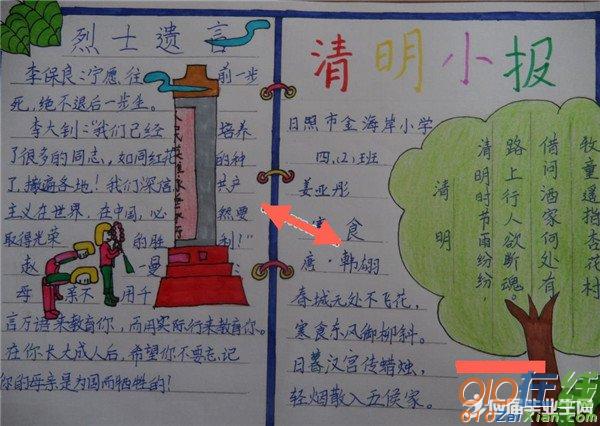 烈士遗言
李保良:宁愿往 前一步
死,绝不退后一步生。
李大钊:"我们已经 培养
了很多的同志,如同红花 的种
了,撒遍各地!我们深信 共产
主义在世界、在中国,必 然要
取得光荣 的胜 利!"
赵 一 曼
母 亲不 用千
言万语来教育你,而用实际行来教育你。
在你长大成人后,希望你不要忘记
你的母亲是为国而牺牲的!
人民英雄永垂不朽
清明小报
日照市金海岸小学
四.(2).班
姜亚彤
寒 食
唐·韩翃
春城无处不飞花,
寒食东风御柳斜。
日暮汉宫传蜡烛,
轻烟散入五侯家。
清 明
清明时节雨纷纷,
路上行人欲断魂。
借问酒家何处有
牧童遥指杏花村
010在线
010zaixian.com
应届毕业生网